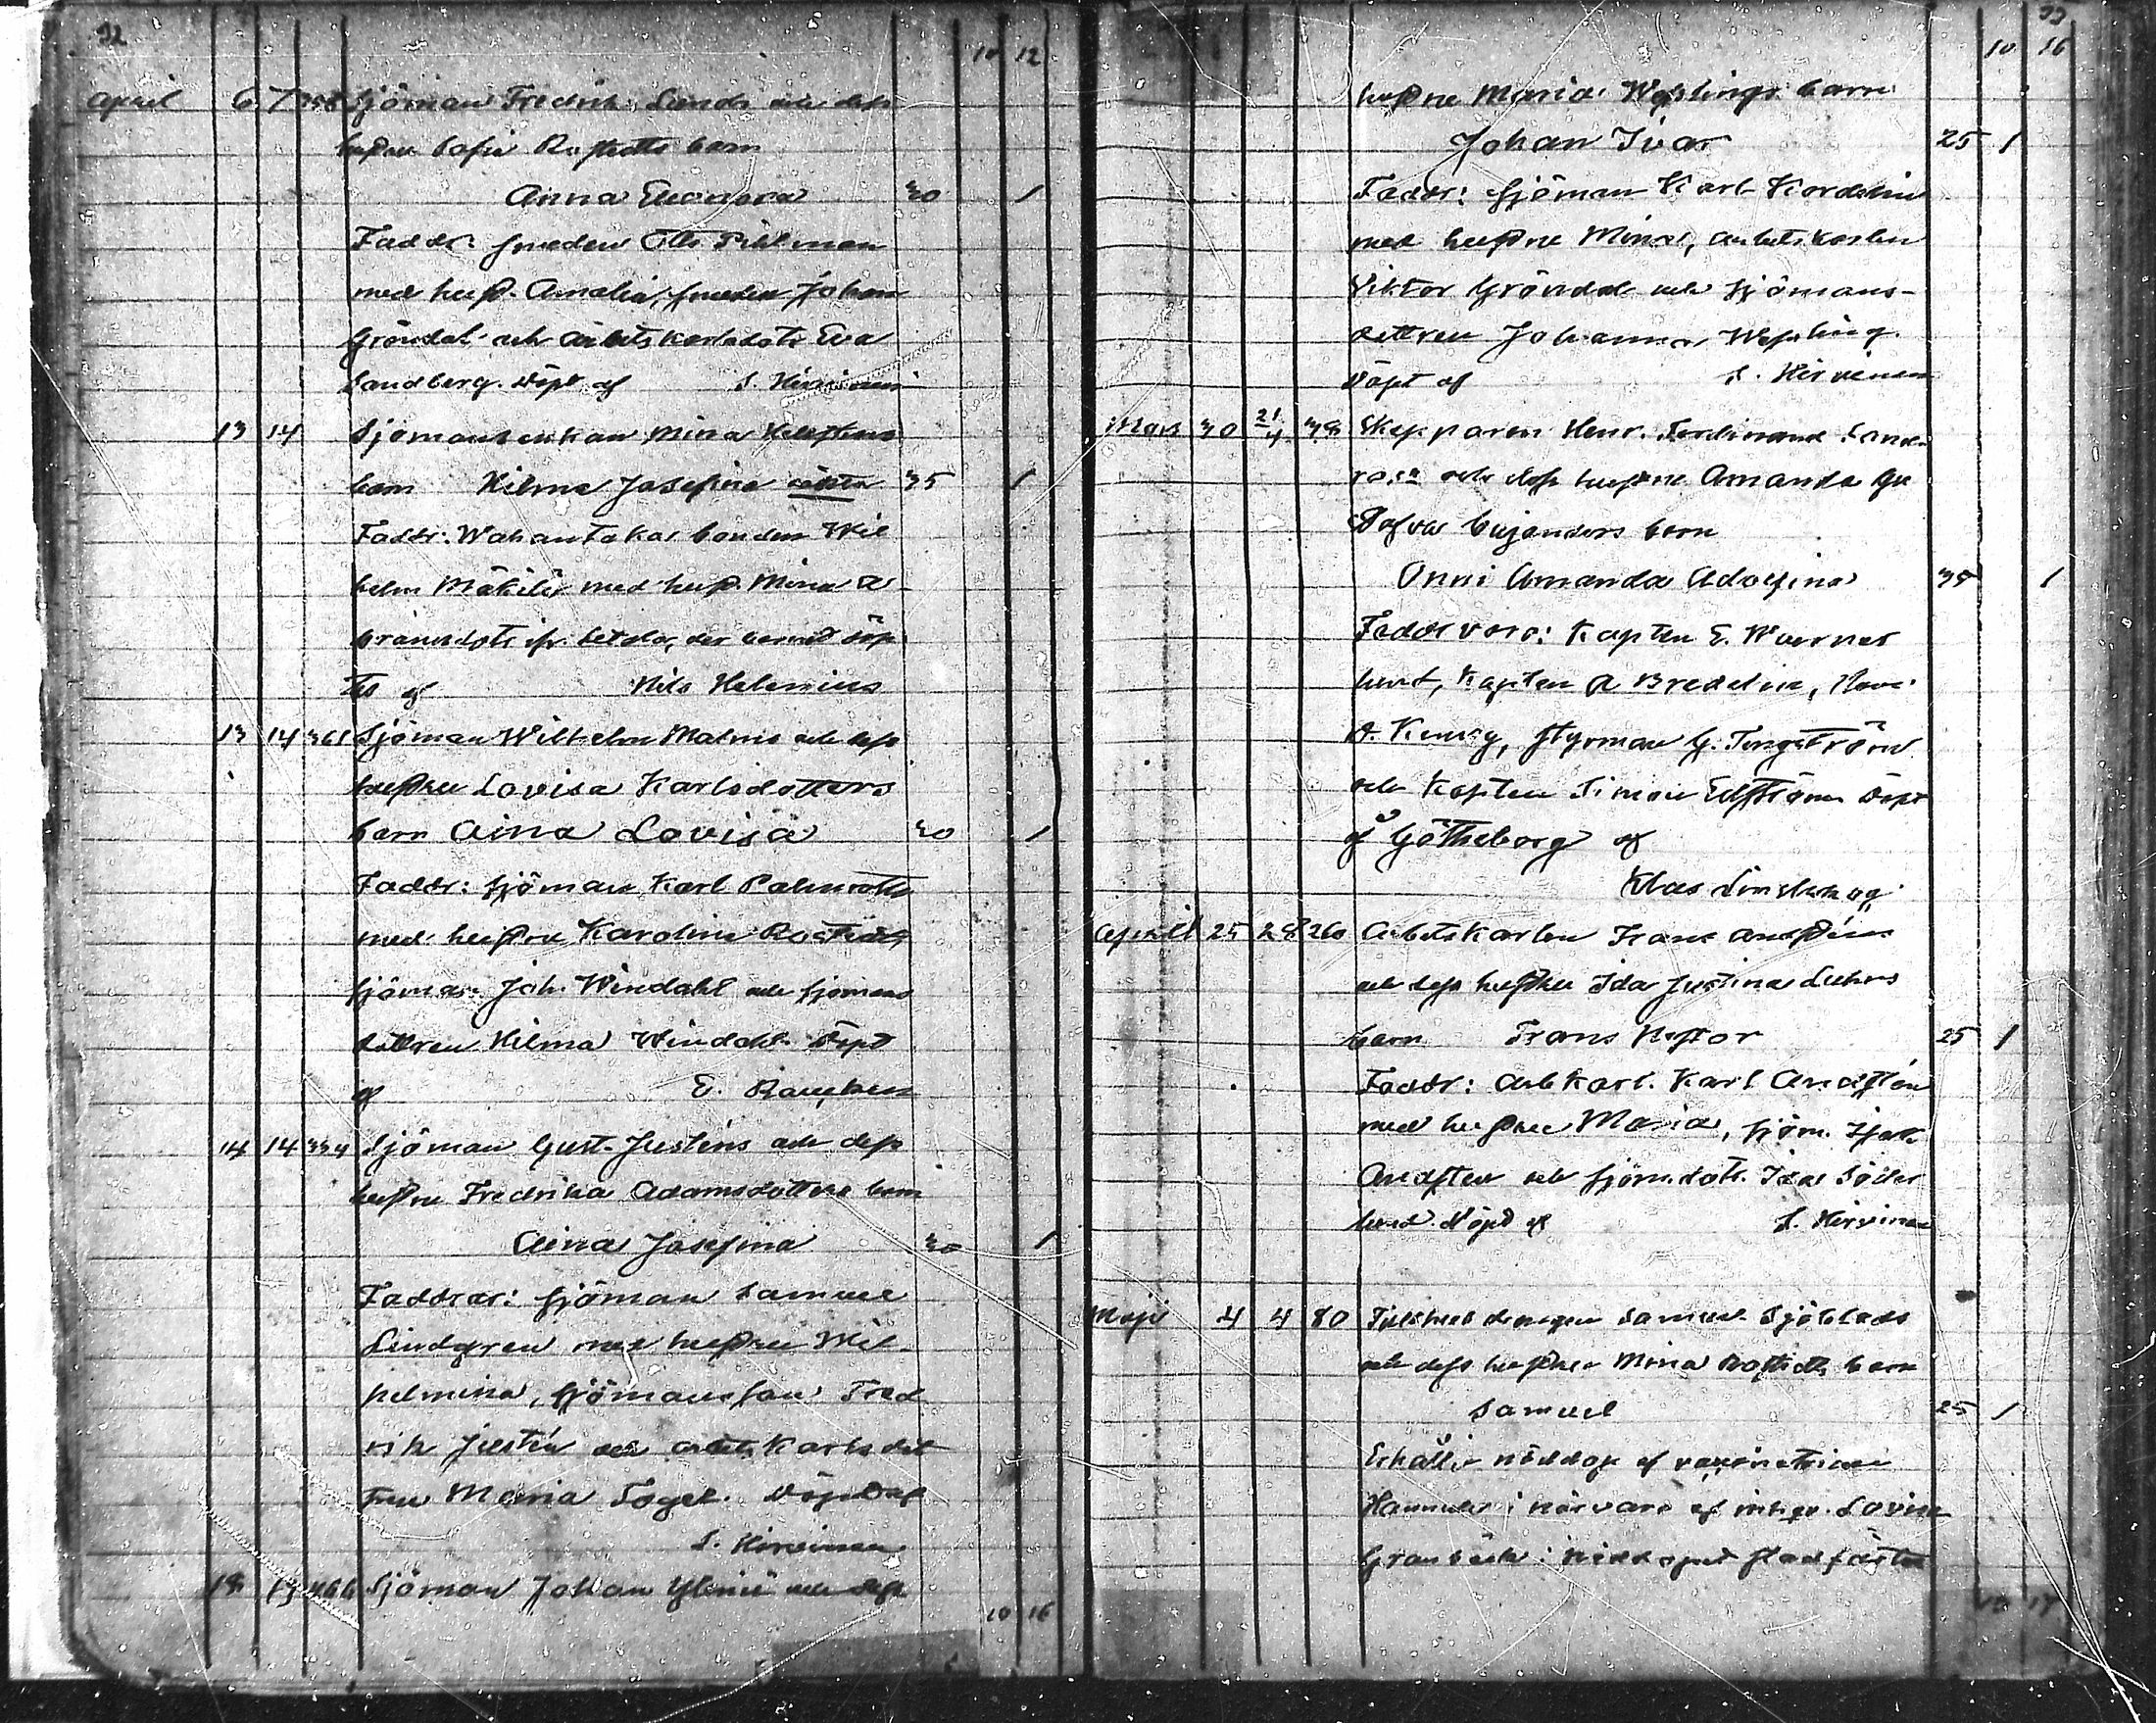 32
10 12
April 6 7 358 Sjöman Fredrik Lunds och dess
hustru Sofia Rostedts barn
Anna Eleonora 30 1
Faddr: smeden Otto Pihlman
med hust. Amalia, smeden Johan
Gröndal och arbetskarlsdotr Eva
Sandberg. Döpt af S. Hirvinen
13 14 Sjömansenkan Mina
barn Hilma Josefina oäkta 35 1
Faddr: Wahantaka bonden Wil
helm Mäkilä med hust. Mina A
brahmsdotr fr. Letala, der barnet döp
tes af Nils Helenius
13 14 361 Sjöman Wilhelm Malms och dess
hustru Lovisa Karlsdotters
barn Aina Lovisa 30 1
Faddr: sjöman Karl Palmroth
med hustru Karolina Rostedt,
sjöman Joh. Windahl och sjömans
dottren Hilma Windahl. Döpt
af E.
14 14 334 Sjöman Gust. Justéns och dess
hustru Fredrika Adamsdotters barn
Aina Josefina 30 1
Faddrar: sjöman Samuel
Lindgren med hustru Wil-
helmina, sjömansson Fred
rik Justén och arbetskarlsdot
tren Maria Fogel. Döpt af
S. Hirvinen
18 19 466 Sjöman Johan och dess
10 16
33
10 16
hustru Maria Wesslings barn
Johan Ivar 25 1
Faddr: sjöman Karl Kordelin
med hustru Mina, arbetskarlen
Viktor Gröndal och sjömans-
dottren Johanna Wessling.
Döpt af S. Hirvinen
Mars 30 21/4 38 Skepparen Henr. Ferdinand
och dess hustru Amanda Gu
stafva Cajanders barn
Onni Amanda Adolfina 35 1
Faddr voro: Kapten E. Werner
lund, Kapten A Bredelin,
styrman G. Tengström
och Kapten Simon Elfström Döpt
i Götheborg af
Klas
April 25 28 260 Arbetskarlen Frans Andsténs
och dess hustru Ida Justina
barn Frans Nestor 25 1
Faddr: arbkarl. Karl Andstén
med hustru Maria, sjöm. Isak
Andstén och sjöm.dotr. Ida Söder
lund. Döpt af S. Hirvinen
Maji 4 4 80 samuel Sjöblads
och dess hustru Mina Rostedts barn
Samuel 25 1
Erhållit nöddop af
i närvaro af Lovisa
Granbäck: nöddopet stadfästes